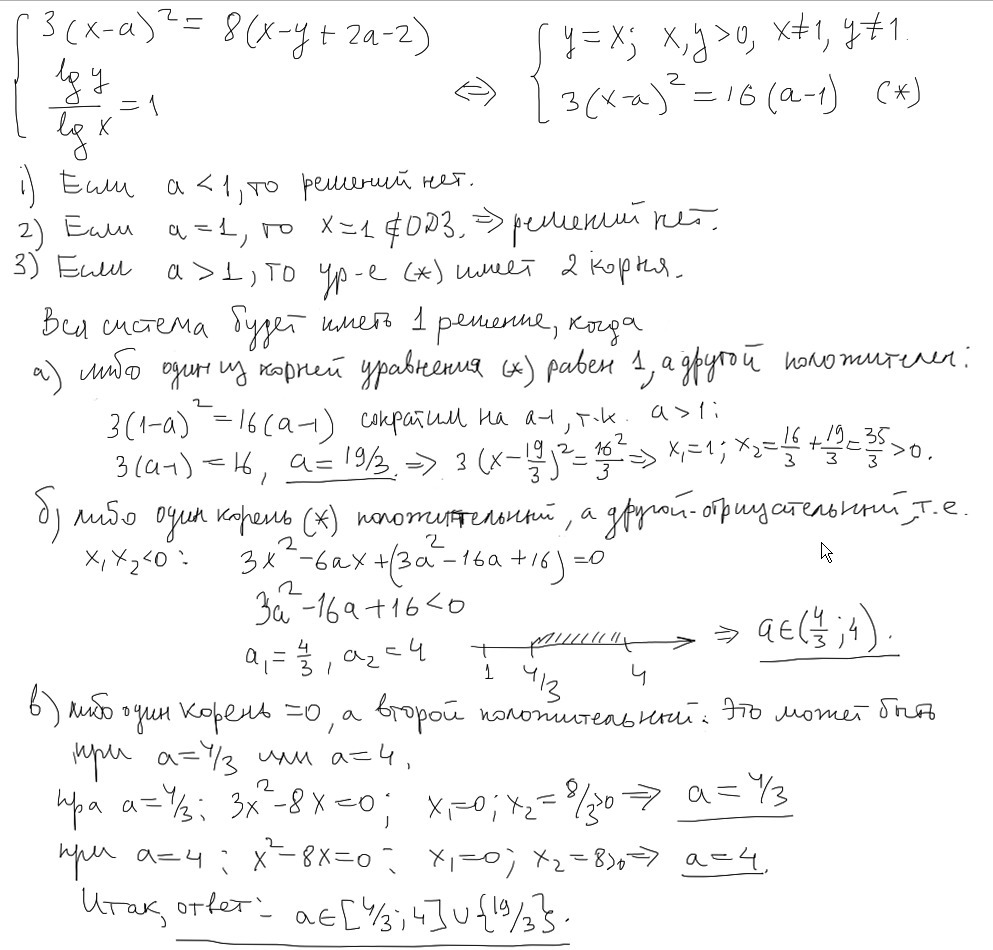 3(x-a)² = 8(x-y+2a-2)
lg y / lg x = 1
⇔
y = x; x,y>0, x≠1, y≠1.
3(x-a)² = 16(a-1) (*)
1) Если a < 1, то решений нет.
2) Если a = 1, то x = 1 ∉ ОДЗ. ⇒ решений нет.
3) Если a > 1, то ур-е (*) имеет 2 корня.
Вся система будет иметь 1 решение, когда
а) либо один из корней уравнения (*) равен 1, а другой положителен:
3(1-a)² = 16(a-1) сократим на a-1, т.к. a > 1:
3(a-1) = 16, a = 19/3. ⇒ 3(x - 19/3)² = 16²/3 ⇒ x₁=1; x₂ = 16/3 + 19/3 = 35/3 > 0.
б) либо один корень (*) положительный, а другой - отрицательный, т.е.
x₁x₂<0: 3x²-6ax+(3a²-16a+16)=0
3a²-16a+16<0
a₁ = 4/3, a₂ = 4 1 4/3 4 ⇒ a∈(4/3; 4).
в) либо один корень =0, а второй положительный. Это может быть
при a=4/3 или a=4.
пра a=4/3: 3x²-8x=0; x₁=0; x₂= 8/3>0 ⇒ a=4/3
при a=4: x²-8x=0: x₁=0; x₂=8>0 ⇒ a=4.
Итак, ответ:- a∈[4/3; 4]∪{19/3}.